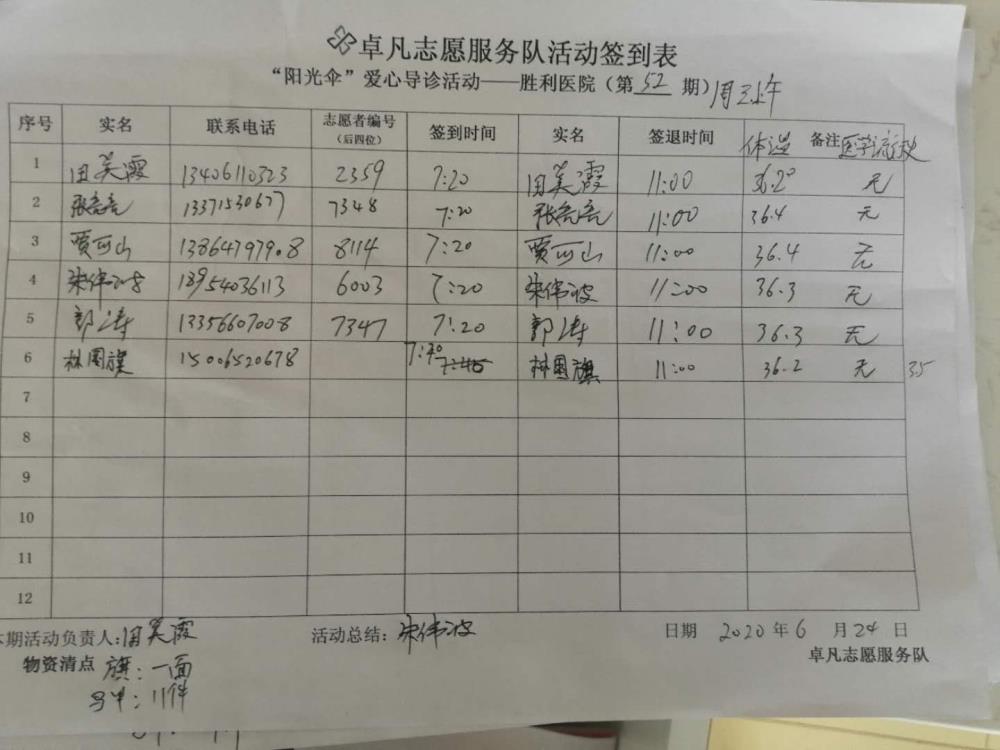 卓凡志愿服务队活动签到表
“阳光伞”爱心导诊活动——胜利医院（第 52 期）周三上午
序号 实名 联系电话 志愿者编号（后四位） 签到时间 实名 签退时间 体温 备注 医学流行史
1 田美霞 13406110323 2359 7:20 田美霞 11:00 36.2° 无
2 张亮亮 13371530677 7348 7:20 张亮亮 11:00 36.4 无
3 贾可山 13864797908 8114 7:20 贾可山 11:00 36.4 无
4 宋伟波 18954036113 6003 7:20 宋伟波 11:00 36.3 无
5 郭涛 13356607008 7347 7:20 郭涛 11:00 36.3 无
6 林国旗 15006520678 7:40 7:45 林国旗 11:00 36.2 无 35
7
8
9
10
11
12
本期活动负责人:田美霞 活动总结: 宋伟波 日期 2020 年 6 月 24 日
物资清点 旗：一面 卓凡志愿服务队
马甲：11件